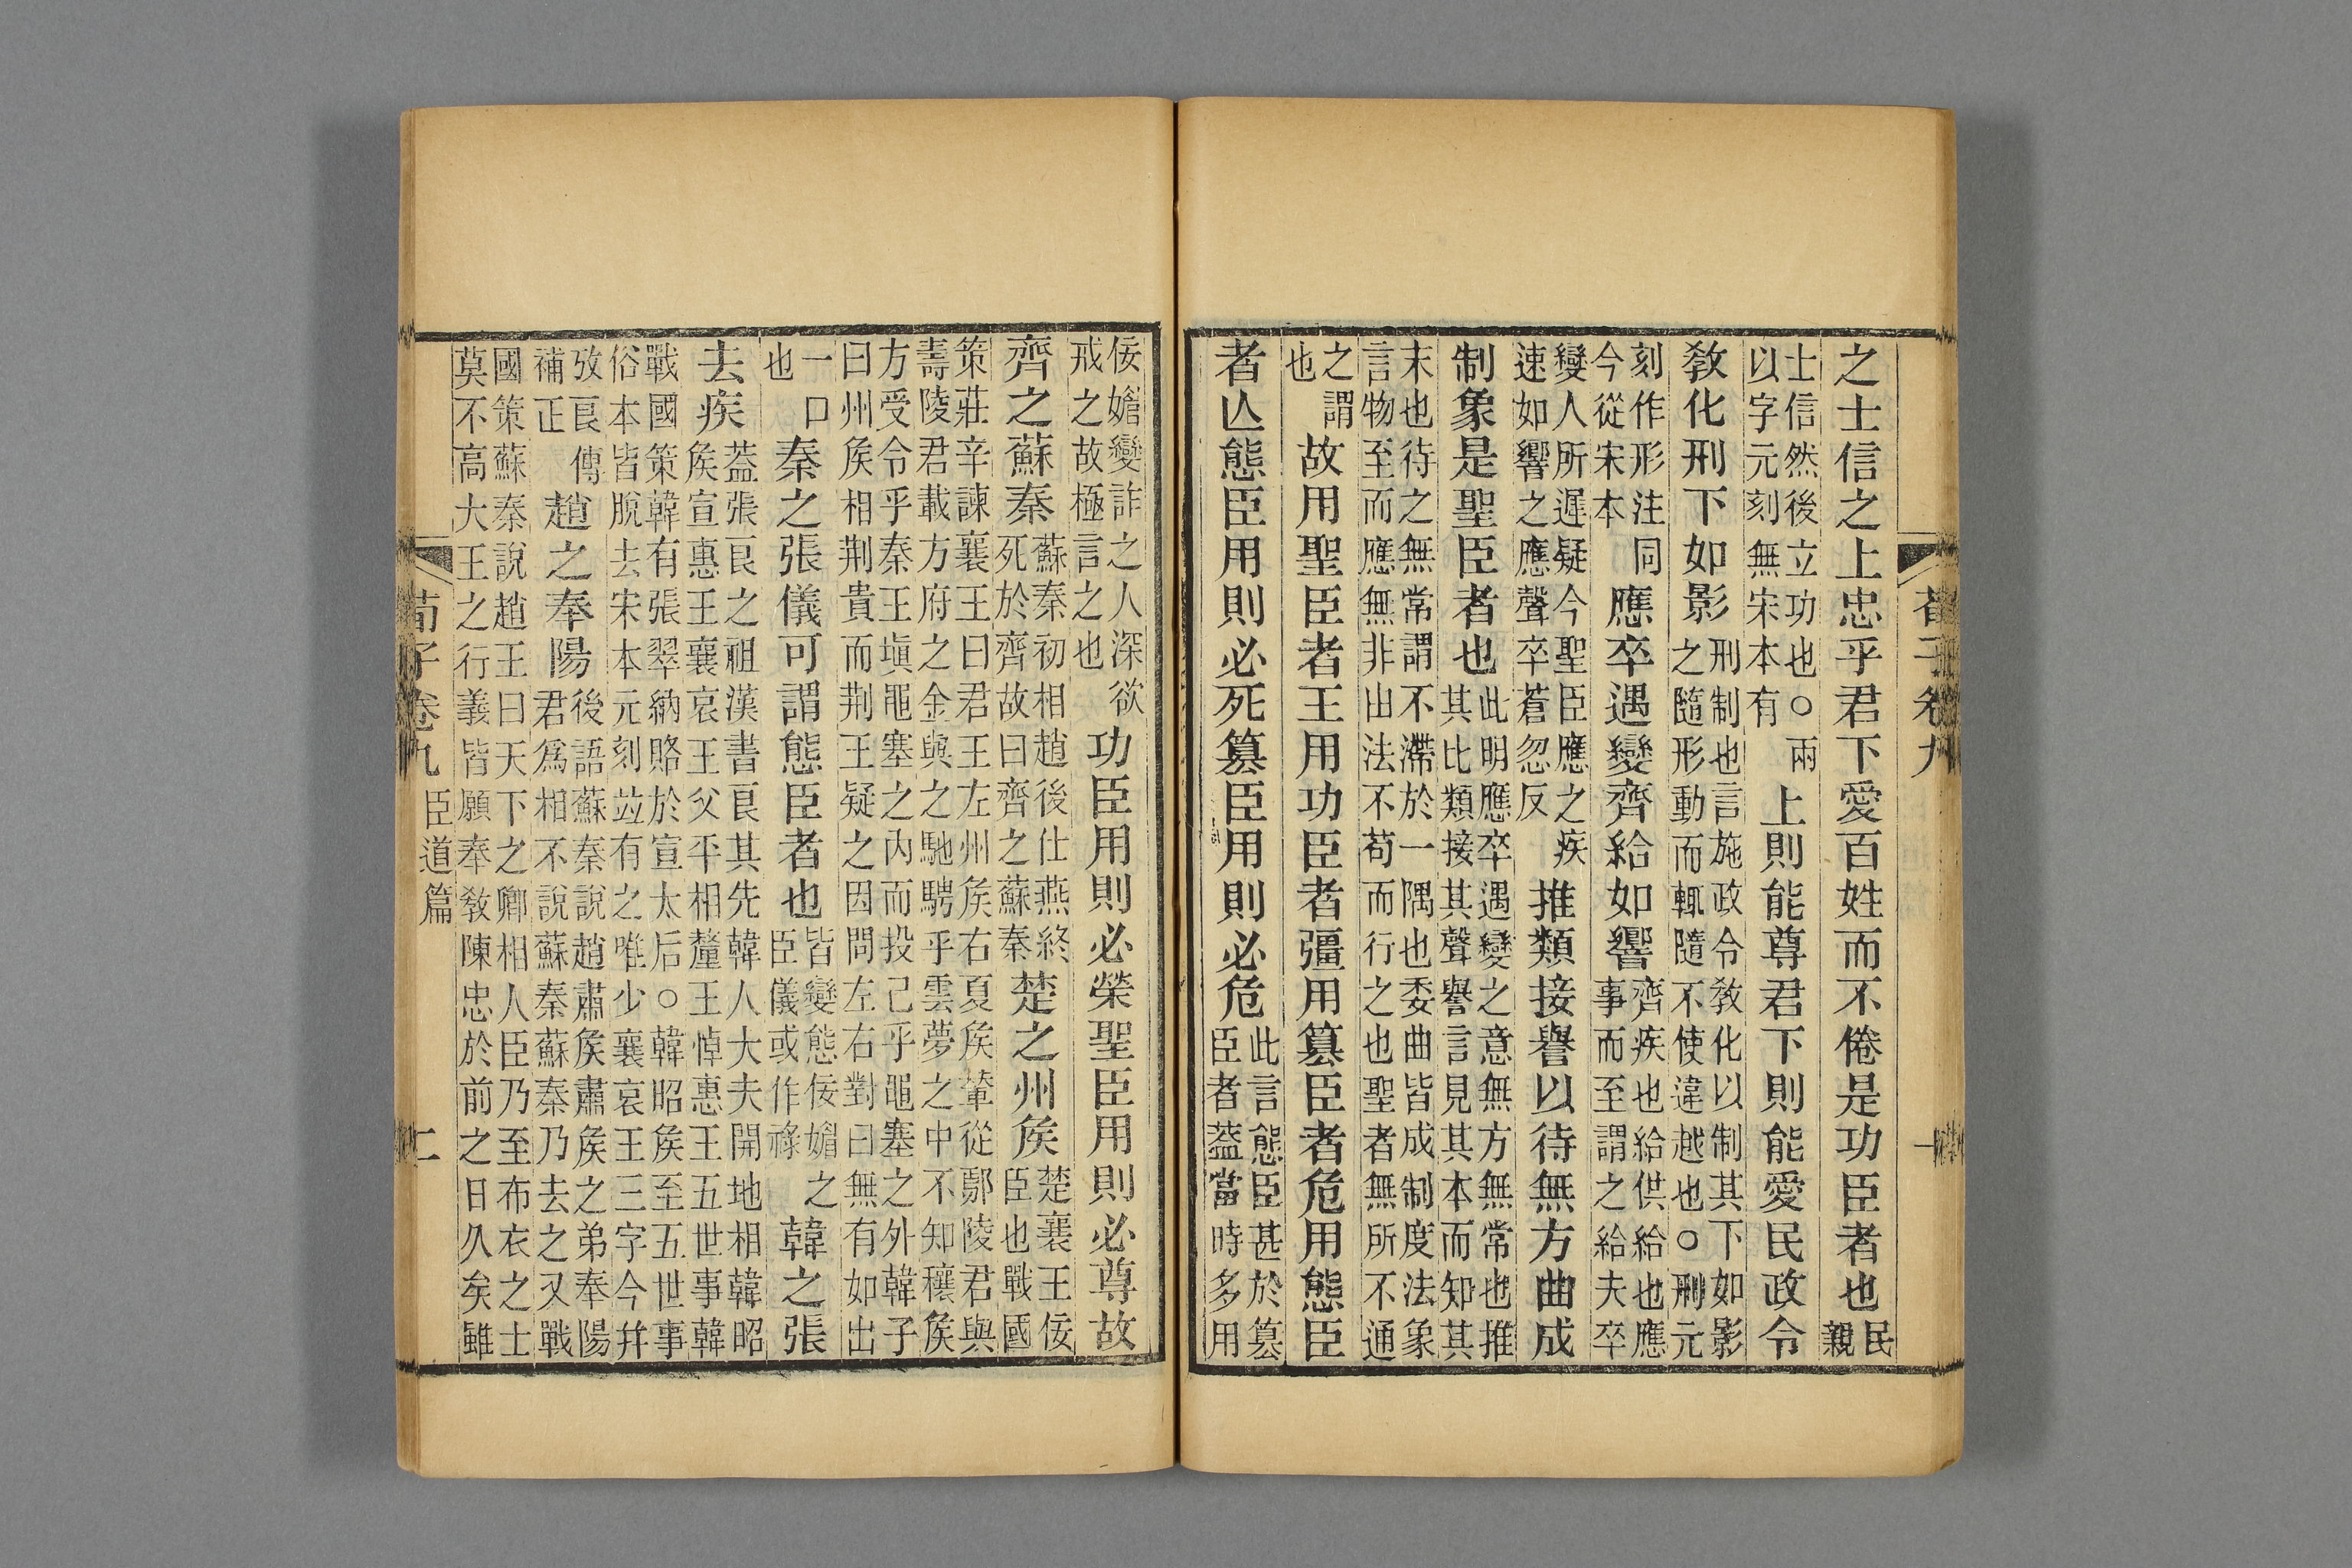 荀子卷九
一
之士信之上忠乎君下愛百姓而不倦是功臣者也民親
士信然後立功也○兩以字元刻無宋本有上則能尊君下則能愛民政令
敎化刑下如影刑制也言施政令敎化以制其下如影之隨形動而輒隨不使違越也○刑元
刻作形注同今從宋本應卒遇變齊給如響齊疾也給供給也應事而至謂之給夫卒
變人所遲疑今聖臣應之疾速如響之應聲卒蒼忽反推類接譽以待無方曲成
制象是聖臣者也此明應卒遇變之意無方無常也推其比類接其聲譽言見其本而知其
末也待之無常謂不滯於一隅也委曲皆成制度法象言物至而應無非由法不苟而行之也聖者無所不通
之謂也故用聖臣者王用功臣者彊用篡臣者危用態臣
者亾態臣用則必死篡臣用則必危此言態臣甚於篡臣者葢當時多用
佞媚變詐之人深欲戒之故極言之也功臣用則必榮聖臣用則必尊故
齊之蘇秦蘇秦初相趙後仕燕終死於齊故曰齊之蘇秦楚之州矦楚襄王佞臣也戰國
策莊辛諫襄王曰君王左州矦右夏矦輦從鄢陵君與壽陵君載方府之金與之馳騁乎雲夢之中不知穰矦
方受令乎秦王塡黽塞之內而投己乎黽塞之外韓子曰州矦相荆貴而荆王疑之因問左右對曰無有如出
一口也秦之張儀可謂態臣者也皆變態佞媚之臣儀或作祿韓之張
去疾葢張良之祖漢書良其先韓人大夫開地相韓昭矦宣惠王襄哀王父平相釐王悼惠王五世事韓
戰國策韓有張翠納賂於宣太后○韓昭矦至五世事俗本皆脫去宋本元刻竝有之唯少襄哀王三字今幷
攷良傳補正趙之奉陽後語蘇秦說趙肅矦肅矦之弟奉陽君爲相不說蘇秦蘇秦乃去之又戰
國策蘇秦說趙王曰天下之卿相人臣乃至布衣之士莫不高大王之行義皆願奉敎陳忠於前之日久矣雖
荀子卷九
臣道篇
二